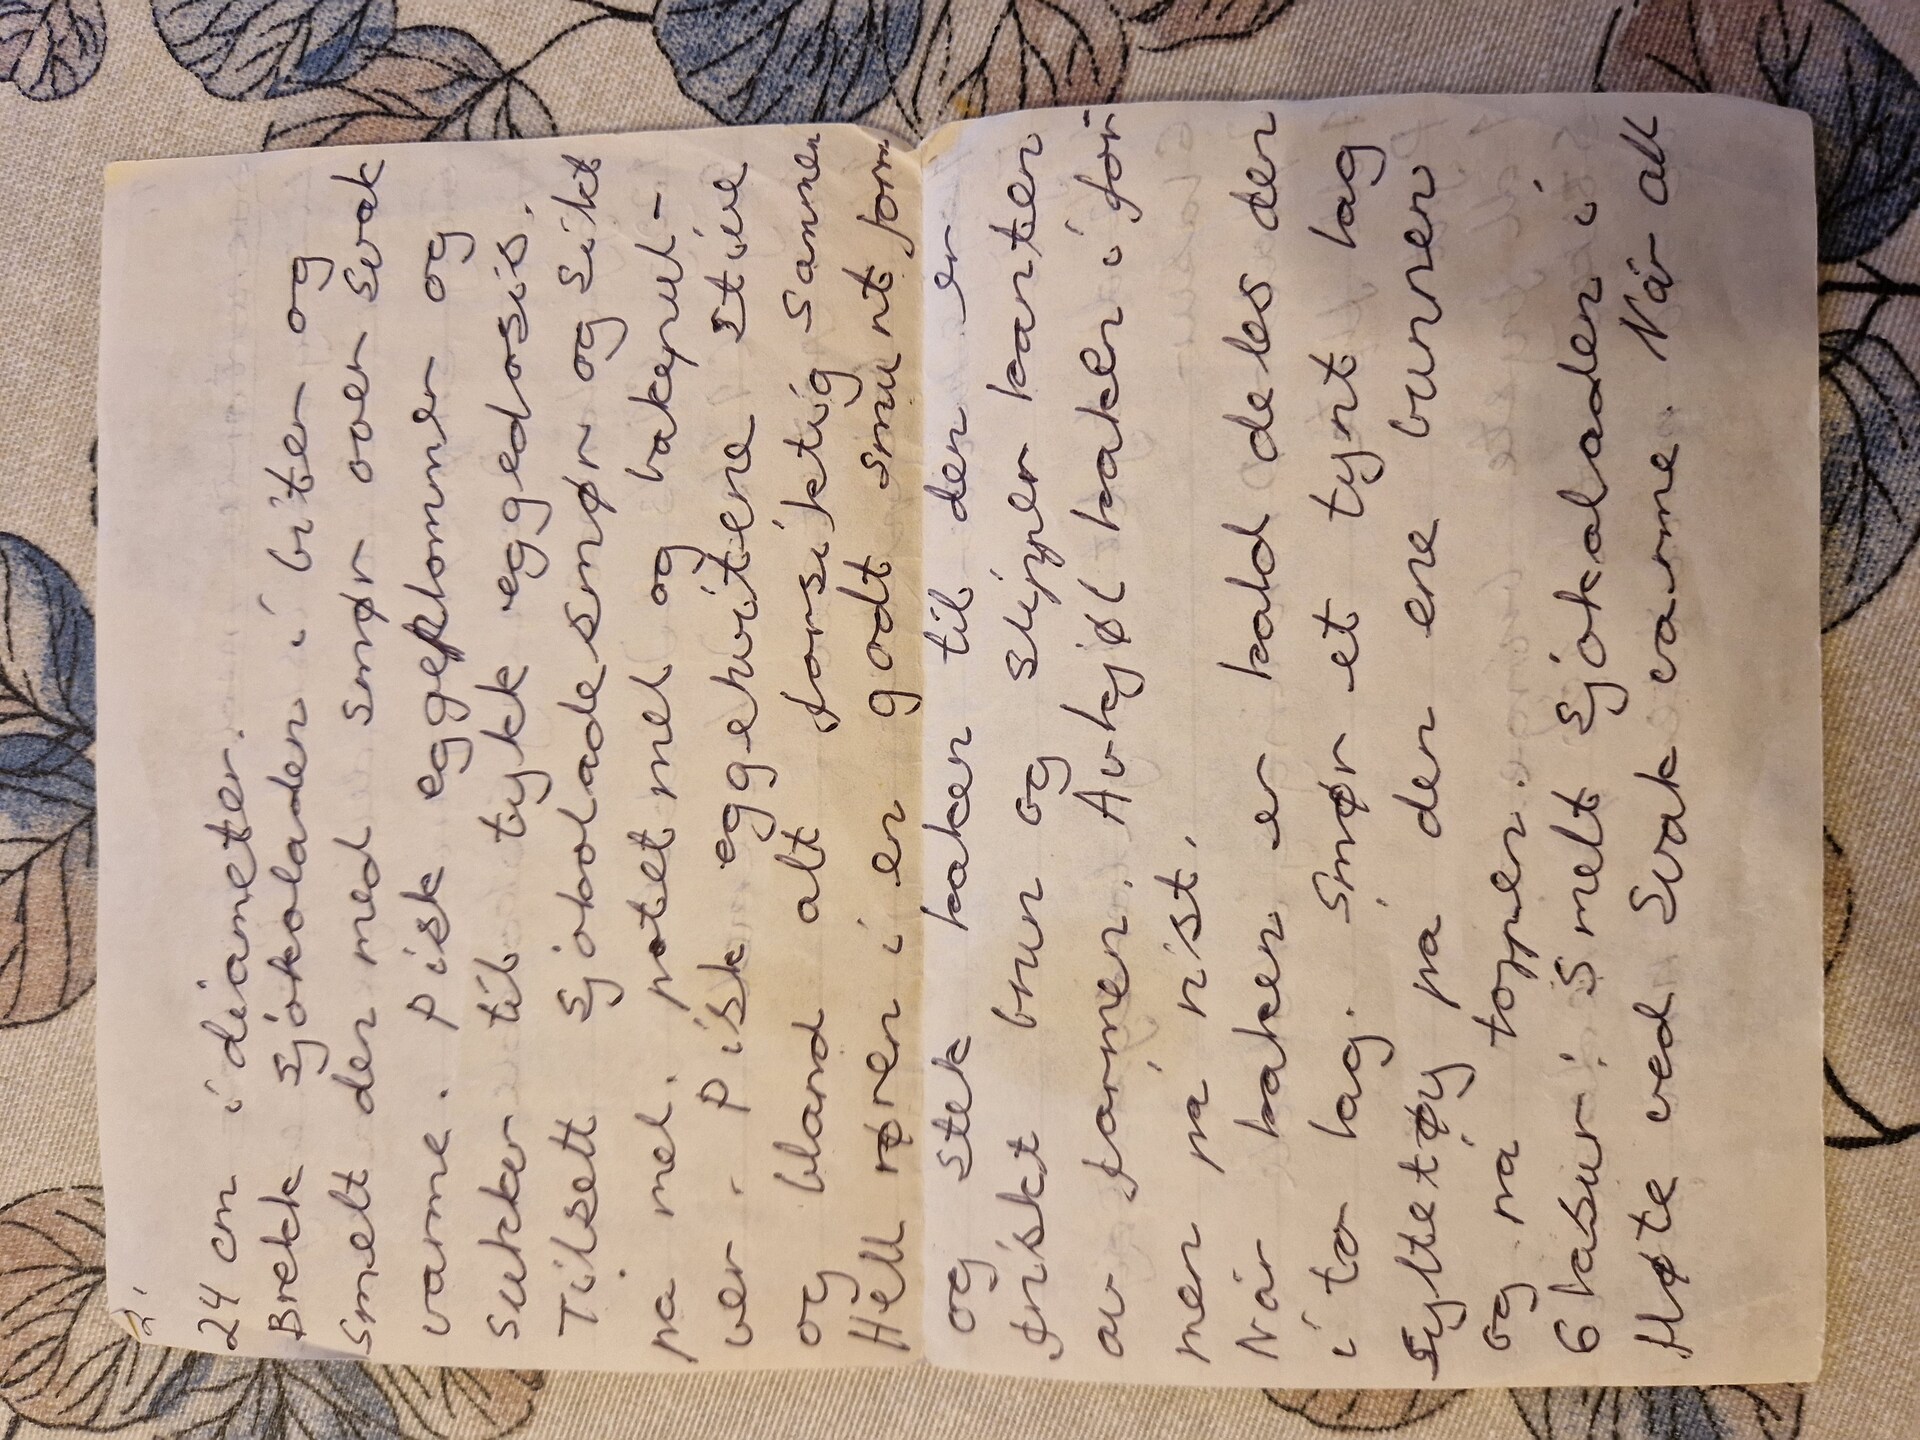 2.
24 cm i diameter.
Brekk sjokoladen i biter og
smelt den med smør over svak
varme. Pisk eggeplommer og
sukker til tykk eggedosis.
Tilsett sjokoladesmør og sikt
på mel. potetmel og bakepul-
ver. Pisk eggehvitene stive
og bland alt forsiktig sammen
Hell røren i en godt smurt form
og stek kaken til den er
friskt brun og slipper kanten
av formen. Avkjøl kaken i for-
men på rist.
Når kaken er kald deles den
i to lag. Smør et tynt lag
syltetøy på den ene bunnen
og på toppen.
Glasur: Smelt sjokoladen i
Fløte ved svak varme. Når alt